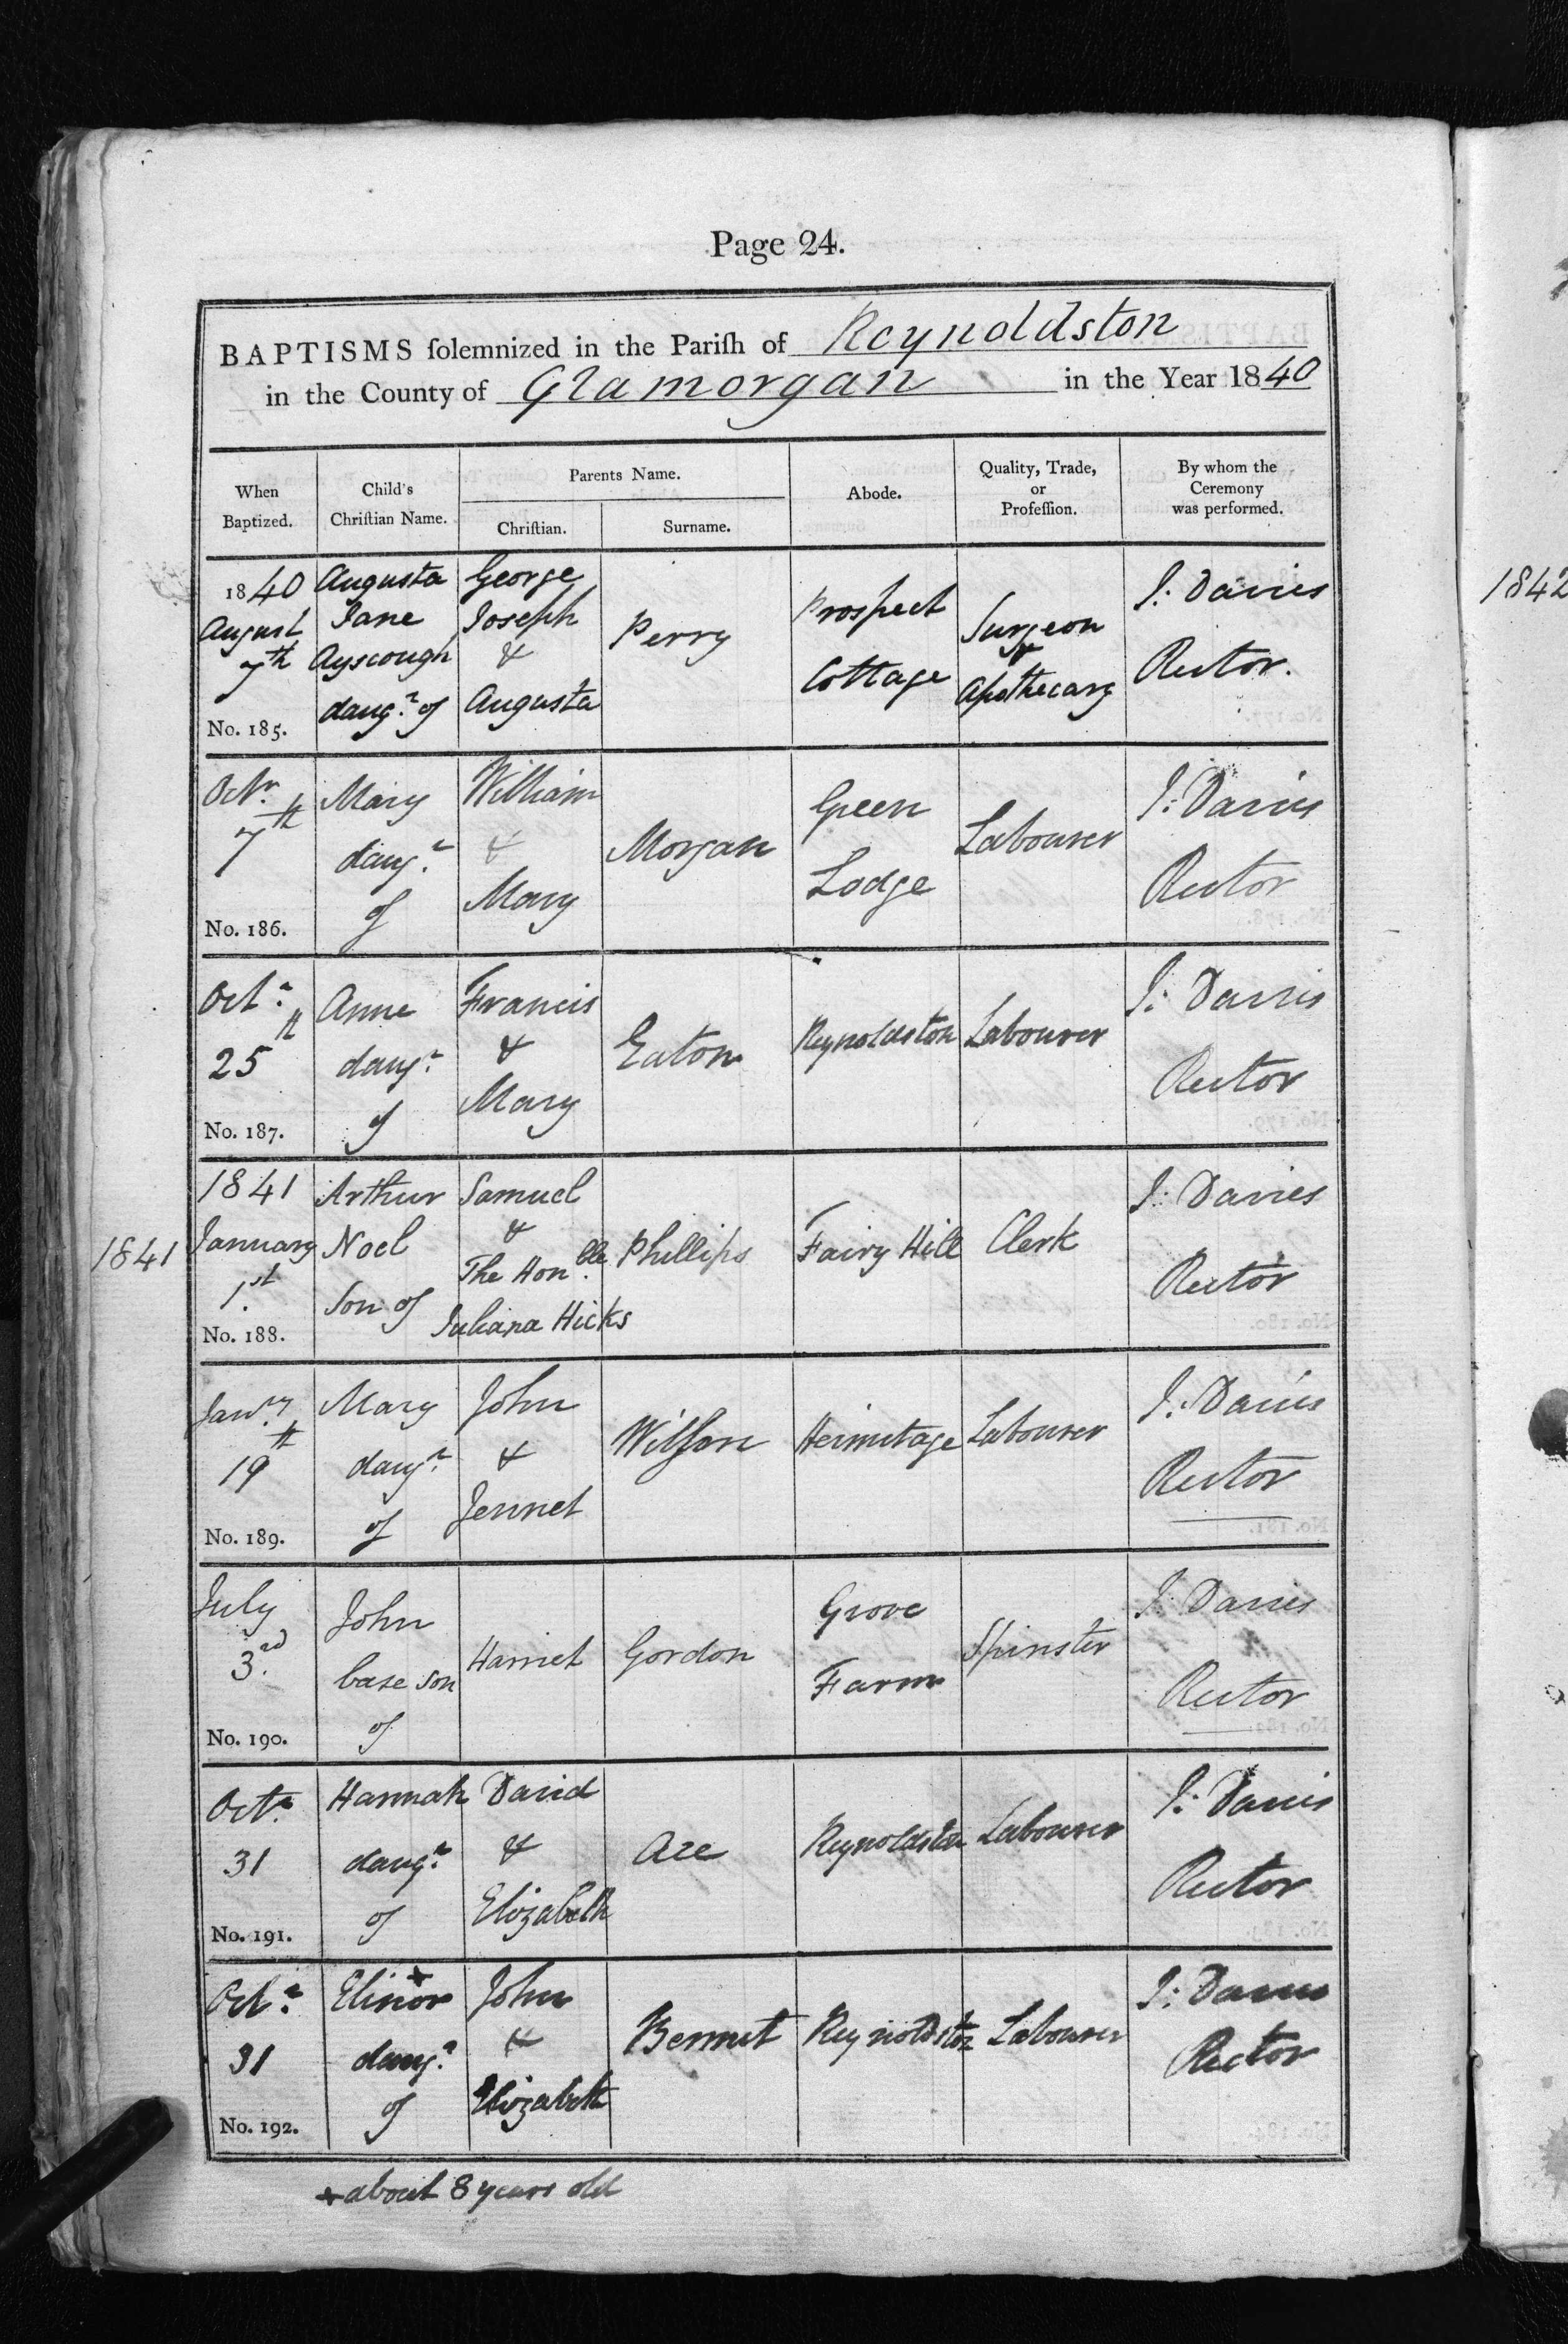 Page 24.
BAPTISMS ſolemnized in the Pariſh of Reynoldston
in the County of Glamorgan in the Year 1840
When
Baptized.
Child's
Chriſtian Name.
Parents Name.
Chriſtian.
Surname.
Abode.
Quality, Trade,
or
Profeſſion.
By whom the
Ceremony
was performed.
1840
August
7th
No. 185.
Augusta
Jane
Ayscough
daugr. of
George
Joseph
&
Augusta
Perry
Prospect
Cottage
Surgeon
&
Apothecary
J: Davies
Rector.
Octr.
7th
No. 186.
Mary
daugr.
of
William
&
Mary
Morgan
Green
Lodge
Labourer
J: Davies
Rector
Octr.
25th
No. 187.
Anne
daugr.
of
Francis
&
Mary
Eaton
Reynoldston
Labourer
J: Davies
Rector
1841
1841
January
1st.
No. 188.
Arthur
Noel
Son of
Samuel
&
The Honble.
Juliana Hicks
Phillips
Fairy Hill
Clerk
J: Davies
Rector
Janry.
19th
No. 189.
Mary
daugr.
of
John
&
Jennet
Wilſon
Hermitage
Labourer
J: Davies
Rector
July
3rd.
No. 190.
John
base son
of
Harriet
Gordon
Grove
Farm
Spinster
J: Davies
Rector
Octr.
31
No. 191.
Hannah
daugr.
of
David
&
Elizabeth
Ace
Reynoldston
Labourer
J: Davies
Rector
Octr.
31
No. 192.
Elinor*
daugr.
of
John
&
Elizabeth
Bennet
Reynoldston
Labourer
J: Davies
Rector
* about 8 years old
1842